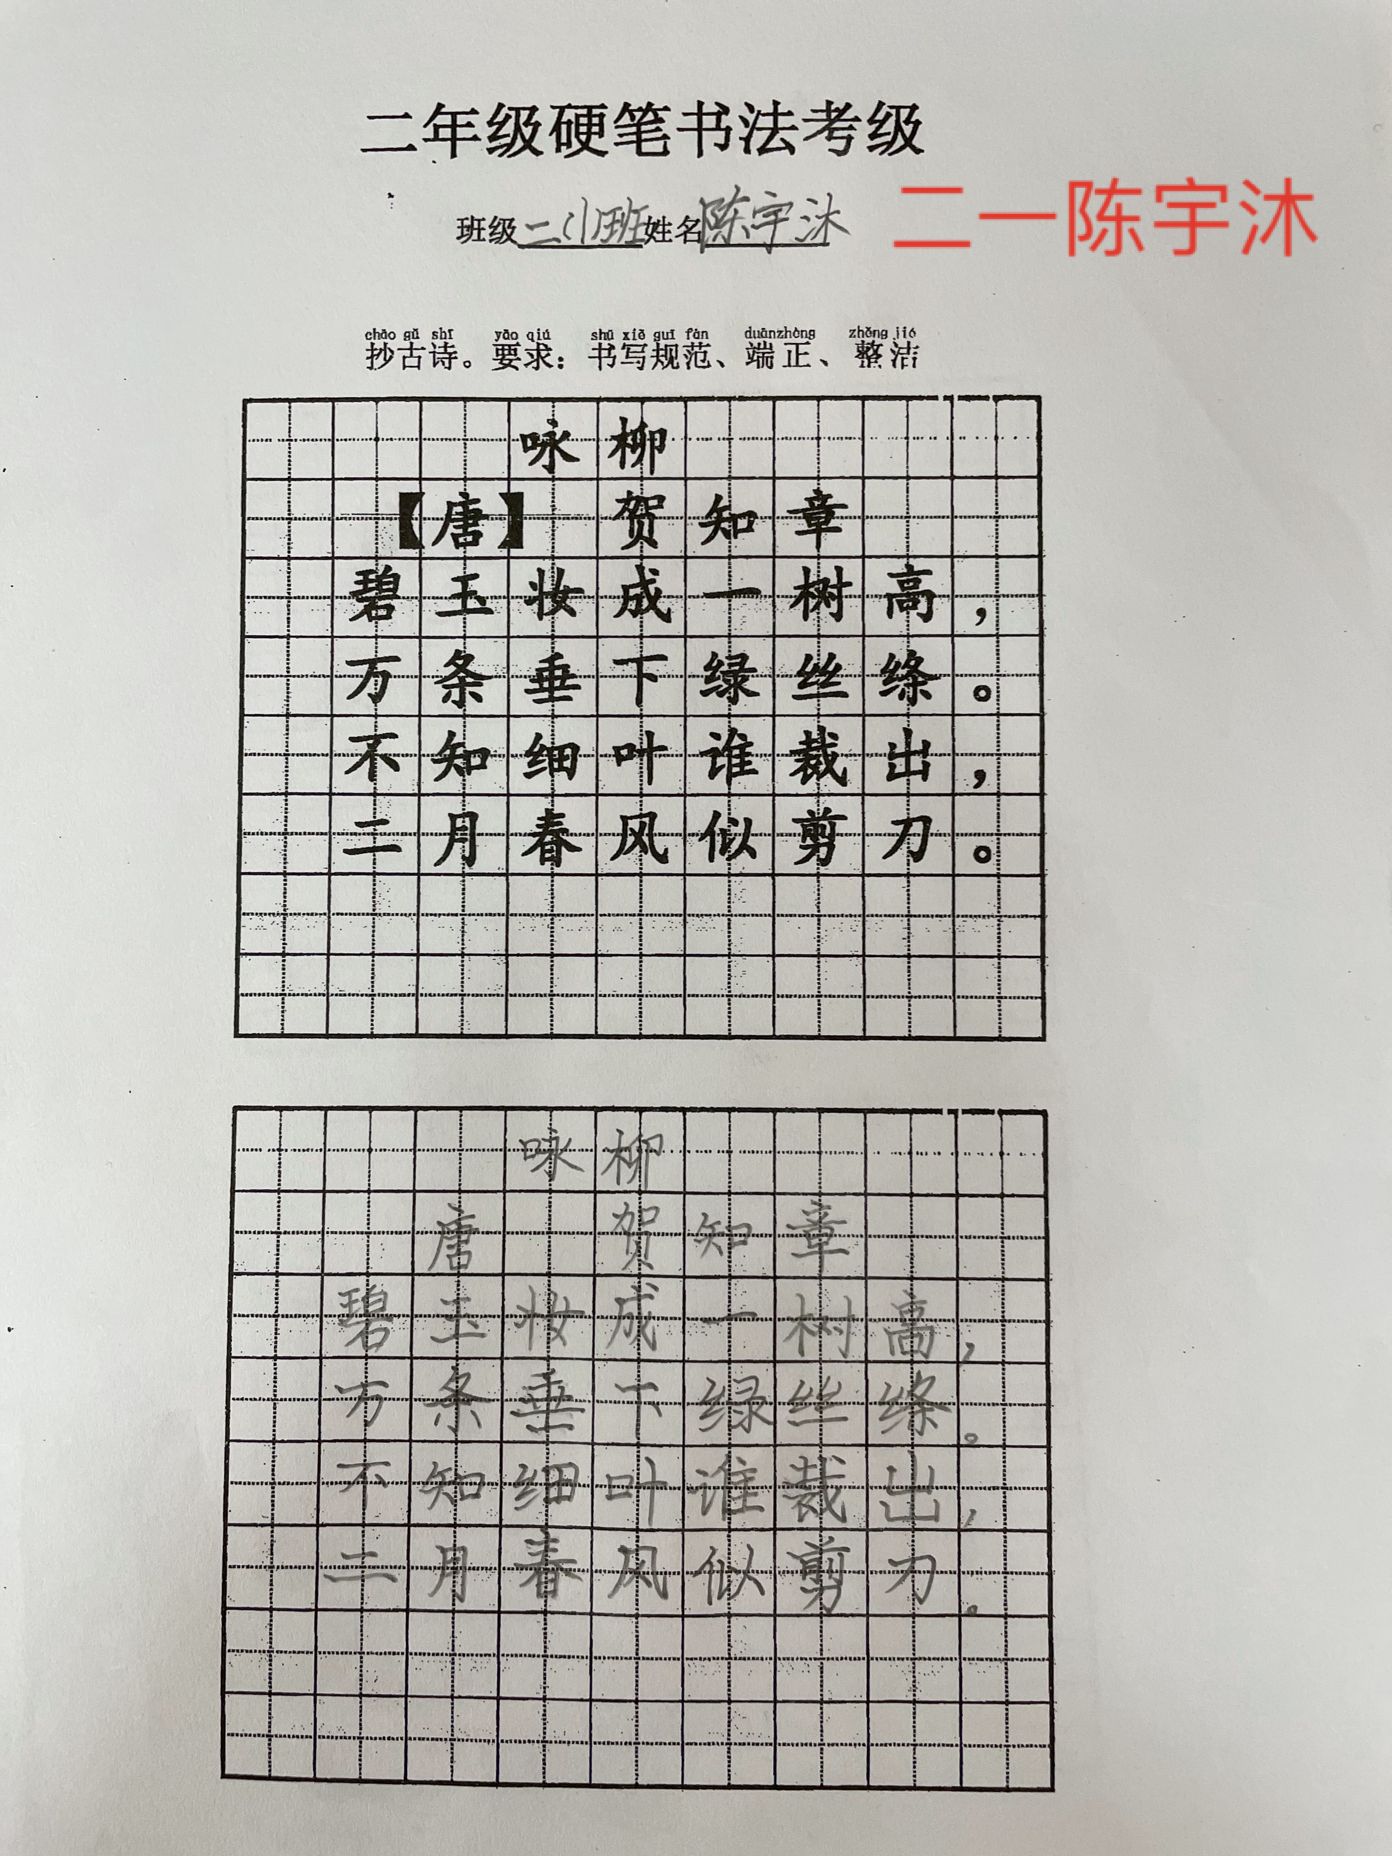 二年级硬笔书法考级
班级二(1)班姓名陈宇沐
二一陈宇沐
chāo gǔ shī yāo qiú shū xiě guī fàn duānzhèng zhěng jié
抄古诗。要求：书写规范、端正、整洁
咏柳
【唐】 贺知章
碧玉妆成一树高，
万条垂下绿丝绦。
不知细叶谁裁出，
二月春风似剪刀。
咏柳
唐 贺知章
碧玉妆成一树高，
万条垂下绿丝绦。
不知细叶谁裁出，
二月春风似剪刀。